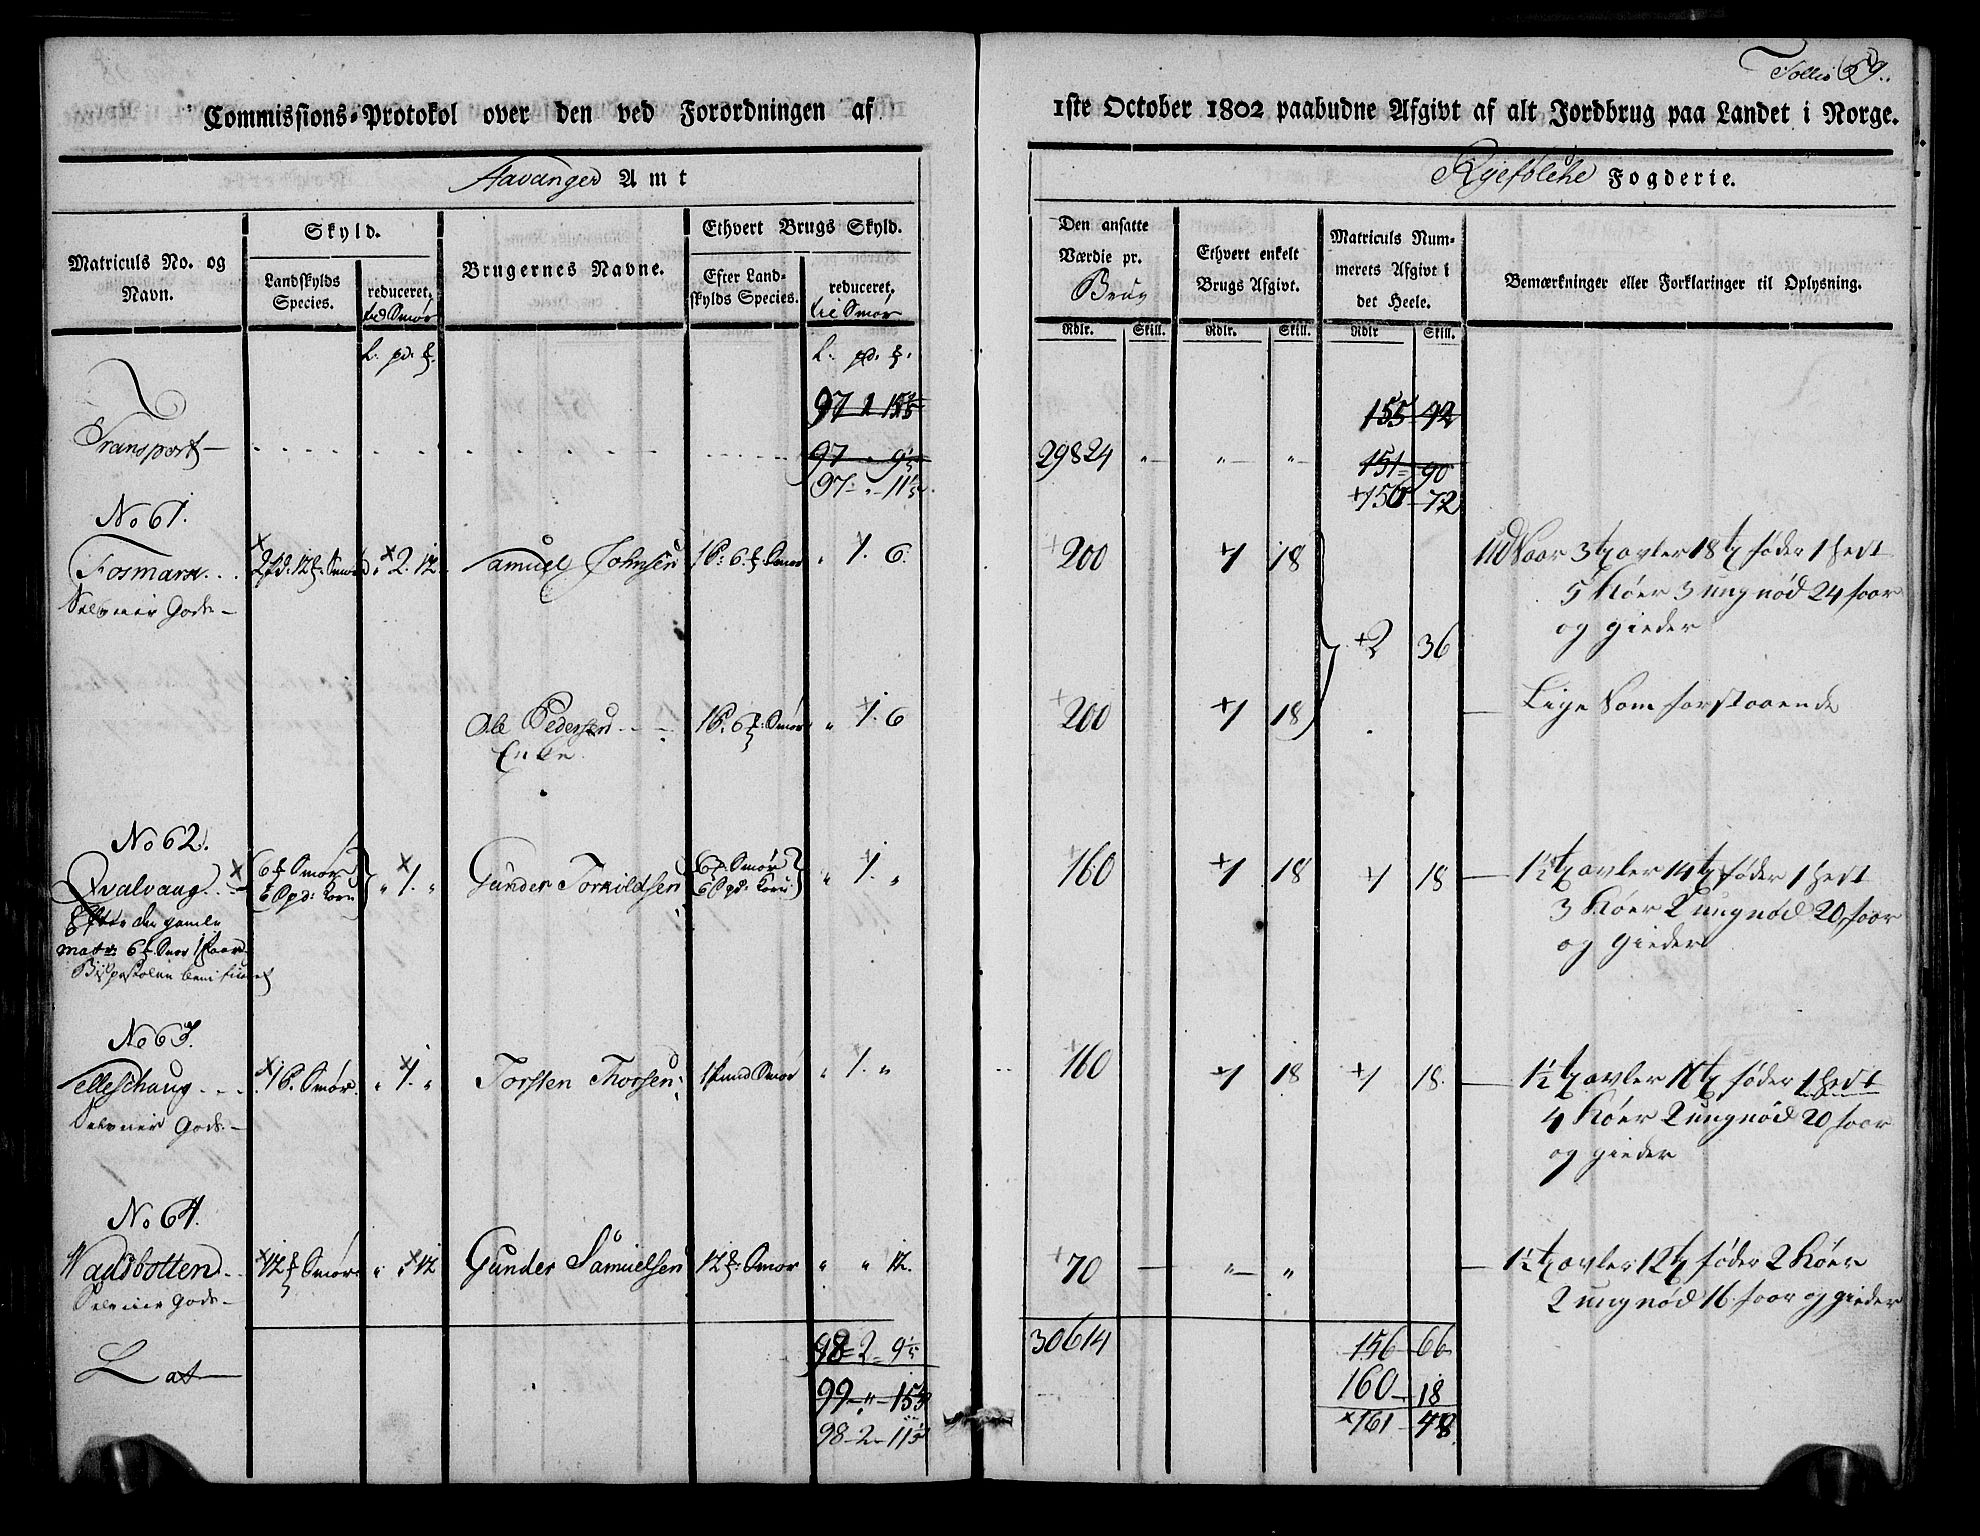 Follio 59.
Commissions-Protokol over den ved Forordningen af 1ste October 1802 paabudne Afgivt af alt Jordbrug paa Landet i Norge.
Stavanger Amt
Ryefølche Fogderie.
Matriculs No. og Navn.
Skyld.
Landskylds Species.
reduceret,
til Smør
Brugernes Navne.
Ethvert Brugs Skyld.
Efter Landskylds Species.
reduceret.
til Smør
Den ansatte Værdie pr.
Brug
Ethvert enkelt Brugs Afgivt.
Matriculs Nummerets Afgivt i det Heele.
Bemærkninger eller Forklaringer til Oplysning.
Rdlr. Skill. Rdlr. Skill. Rdlr Skill.
L. pd. L. pd.
97 1 155 92
Transport 97 29824 „ „ „ 151 90
97 „ 11 150 72
No 61.
Fosmark 2 pd: 12 Smør „ 2. 12 Samuel Johnsen 1 P: 6 Smør „ 1. 6. 200 1 18 Saar 3 avler 18 føder 1 Hest
Selveier Gods 5 Køer 3 ungnød 24 Faar
og gieder
2 36
Ole Pedersen 1 P. 6 Smør „ 1. 6 200 1 18 Lige som forstaaende
Enke
No 62.
Qvalvaag 6 Smør 6 Spd: Korn „ 1. „ Gunder Torkildsen 6 Smør 6 Spd: Korn „ 1. „ 160 1 18 1 18 1½ avler 14 føder 1 Hest
Efter den gamle 3 Køer 2 ungnød 20 Faar
matr: 6 Smør og gieder
Bispestolen beneficeret
No 63.
Tellefshaug 1 P. Smør „ 1. „ Torsten Thorsen 1 Pund Smør „ 1. „ 160 1 18 1 18. 1½ avler føder 1 Hest
Selveier Gods 4 Køer 2 ungnød 20 Faar
og gieder
No 64.
Vadsbotten 12 Smør „ „ 12 Gunder Samuelsen 12 Smør „ „ 12. 70 „ „ 1½ avler 12 føder 2 Køer
Selveier Gods 2 ungnød 16 Faar og gieder
98 2 9 30614 156 66
Lat 99 „ 15 160 18
98 2 11 161 48